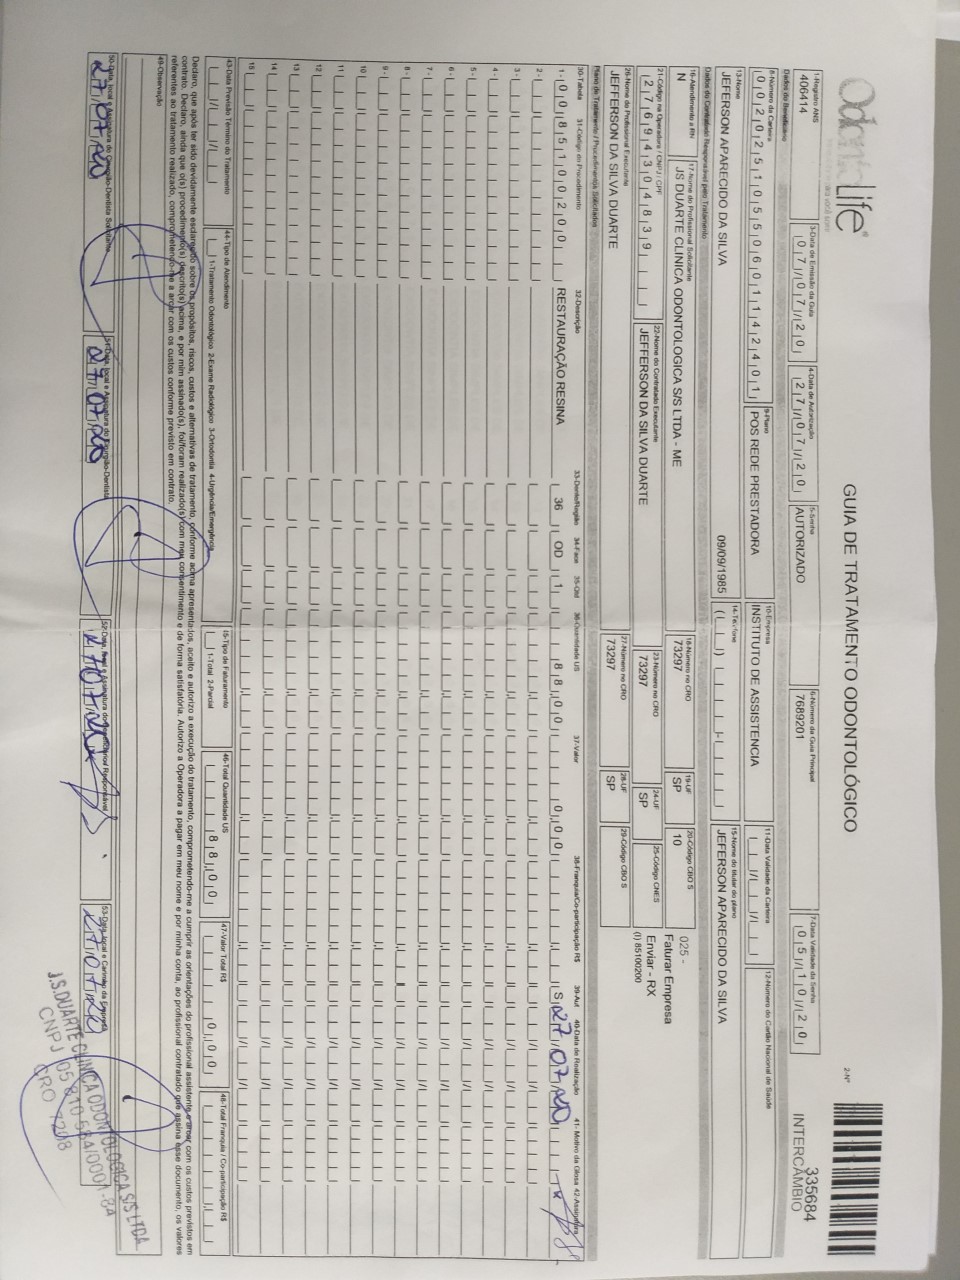 OdontoLife®
GUIA DE TRATAMENTO ODONTOLÓGICO
2-Nº
335684
INTERCÂMBIO
1-Registro ANS
406414
3-Data de Emissão da Guia
07/07/20
4-Data de Autorização
27/07/20
5-Senha
AUTORIZADO
6-Número da Guia Principal
7689201
7-Data Validade da Senha
05/10/20
Dados do Beneficiário
8-Número da Carteira
00202510550601142401
9-Plano
POS REDE PRESTADORA
10-Empresa
INSTITUTO DE ASSISTENCIA
11-Data Validade da Carteira
12-Número do Cartão Nacional de Saúde
13-Nome
JEFERSON APARECIDO DA SILVA
09/09/1985
14-Telefone
15-Nome do titular do plano
JEFERSON APARECIDO DA SILVA
Dados do Contratado Responsável pelo Tratamento
16-Atendimento a RN
N
17-Nome do Profissional Solicitante
JS DUARTE CLINICA ODONTOLOGICA S/S LTDA - ME
18-Número no CRO
73297
19-UF
SP
20-Código CBO S
10
025 -
Faturar Empresa
21-Código na Operadora / CNPJ / CPF
27694304839
22-Nome do Contratado Executante
JEFFERSON DA SILVA DUARTE
23-Número no CRO
73297
24-UF
SP
25-Código CNES
Enviar - RX
(I) 85100200
26-Nome do Profissional Executante
JEFFERSON DA SILVA DUARTE
27-Número no CRO
73297
28-UF
SP
29-Código CBO S
Plano de Tratamento / Procedimentos Solicitados
30-Tabela 31-Código do Procedimento 32-Descrição 33-Dente/Região 34-Face 35-Qtd 36-Quantidade US 37-Valor 38-Franquia/Co-participação R$ 39-Aut 40-Data de Realização 41- Motivo da Glosa 42-Assinatura
1- 00 85100200 RESTAURAÇÃO RESINA 36 OD 1 88,00 0,00 S 27 07 20
2-
3-
4-
5-
6-
7-
8-
9-
10
11
12
13
14
15
43-Data Previsão Término do Tratamento
44-Tipo de Atendimento
1-Tratamento Odontológico 2-Exame Radiológico 3-Ortodontia 4-Urgência/Emergência
45-Tipo de Faturamento
1-Total 2-Parcial
46-Total Quantidade US
88,00
47-Valor Total R$
0,00
48-Total Franquia / Co-participação R$
Declaro, que após ter sido devidamente esclarecido sobre os propósitos, riscos, custos e alternativas de tratamento, conforme acima apresentados, aceito e autorizo a execução do tratamento, comprometendo-me a cumprir as orientações do profissional assistente e arcar com os custos previstos em
contrato. Declaro, ainda que o(s) procedimento(s) descrito(s) acima, e por mim assinado(s), foi/foram realizado(s) com meu consentimento e de forma satisfatória. Autorizo a Operadora a pagar em meu nome e por minha conta, ao profissional contratado que assina esse documento, os valores
referentes ao tratamento realizado, comprometendo-me a arcar com os custos conforme previsto em contrato.
49-Observação
50-Data, local e Assinatura do Cirurgião-Dentista Solicitante
27 07 20
51-Data, local e Assinatura do Cirurgião-Dentista
27 07 20
52-Data, local e Assinatura do Beneficiário/ Responsável
27 07 20
53-Data, local e Carimbo da Empresa
27 07 20
J.S.DUARTE CLINICA ODONTOLOGICA S/S LTDA
CNPJ 05 810 584/0001.84
CRO 7208